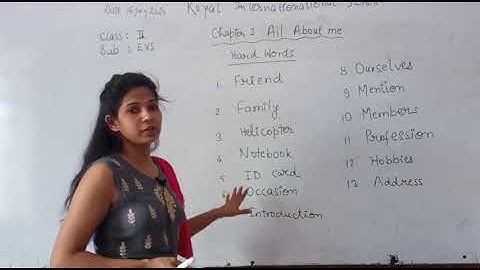 Royal International School
Class: II
Sub: EVS
Chapter 1 All About me
Hard Words
1 Friend
2 Family
3 Helicopter
4 Notebook
5 ID card
6 Occasion
Introduction
8 Ourselves
9 Mention
10 Members
11 Profession
12 Hobbies
13 Address